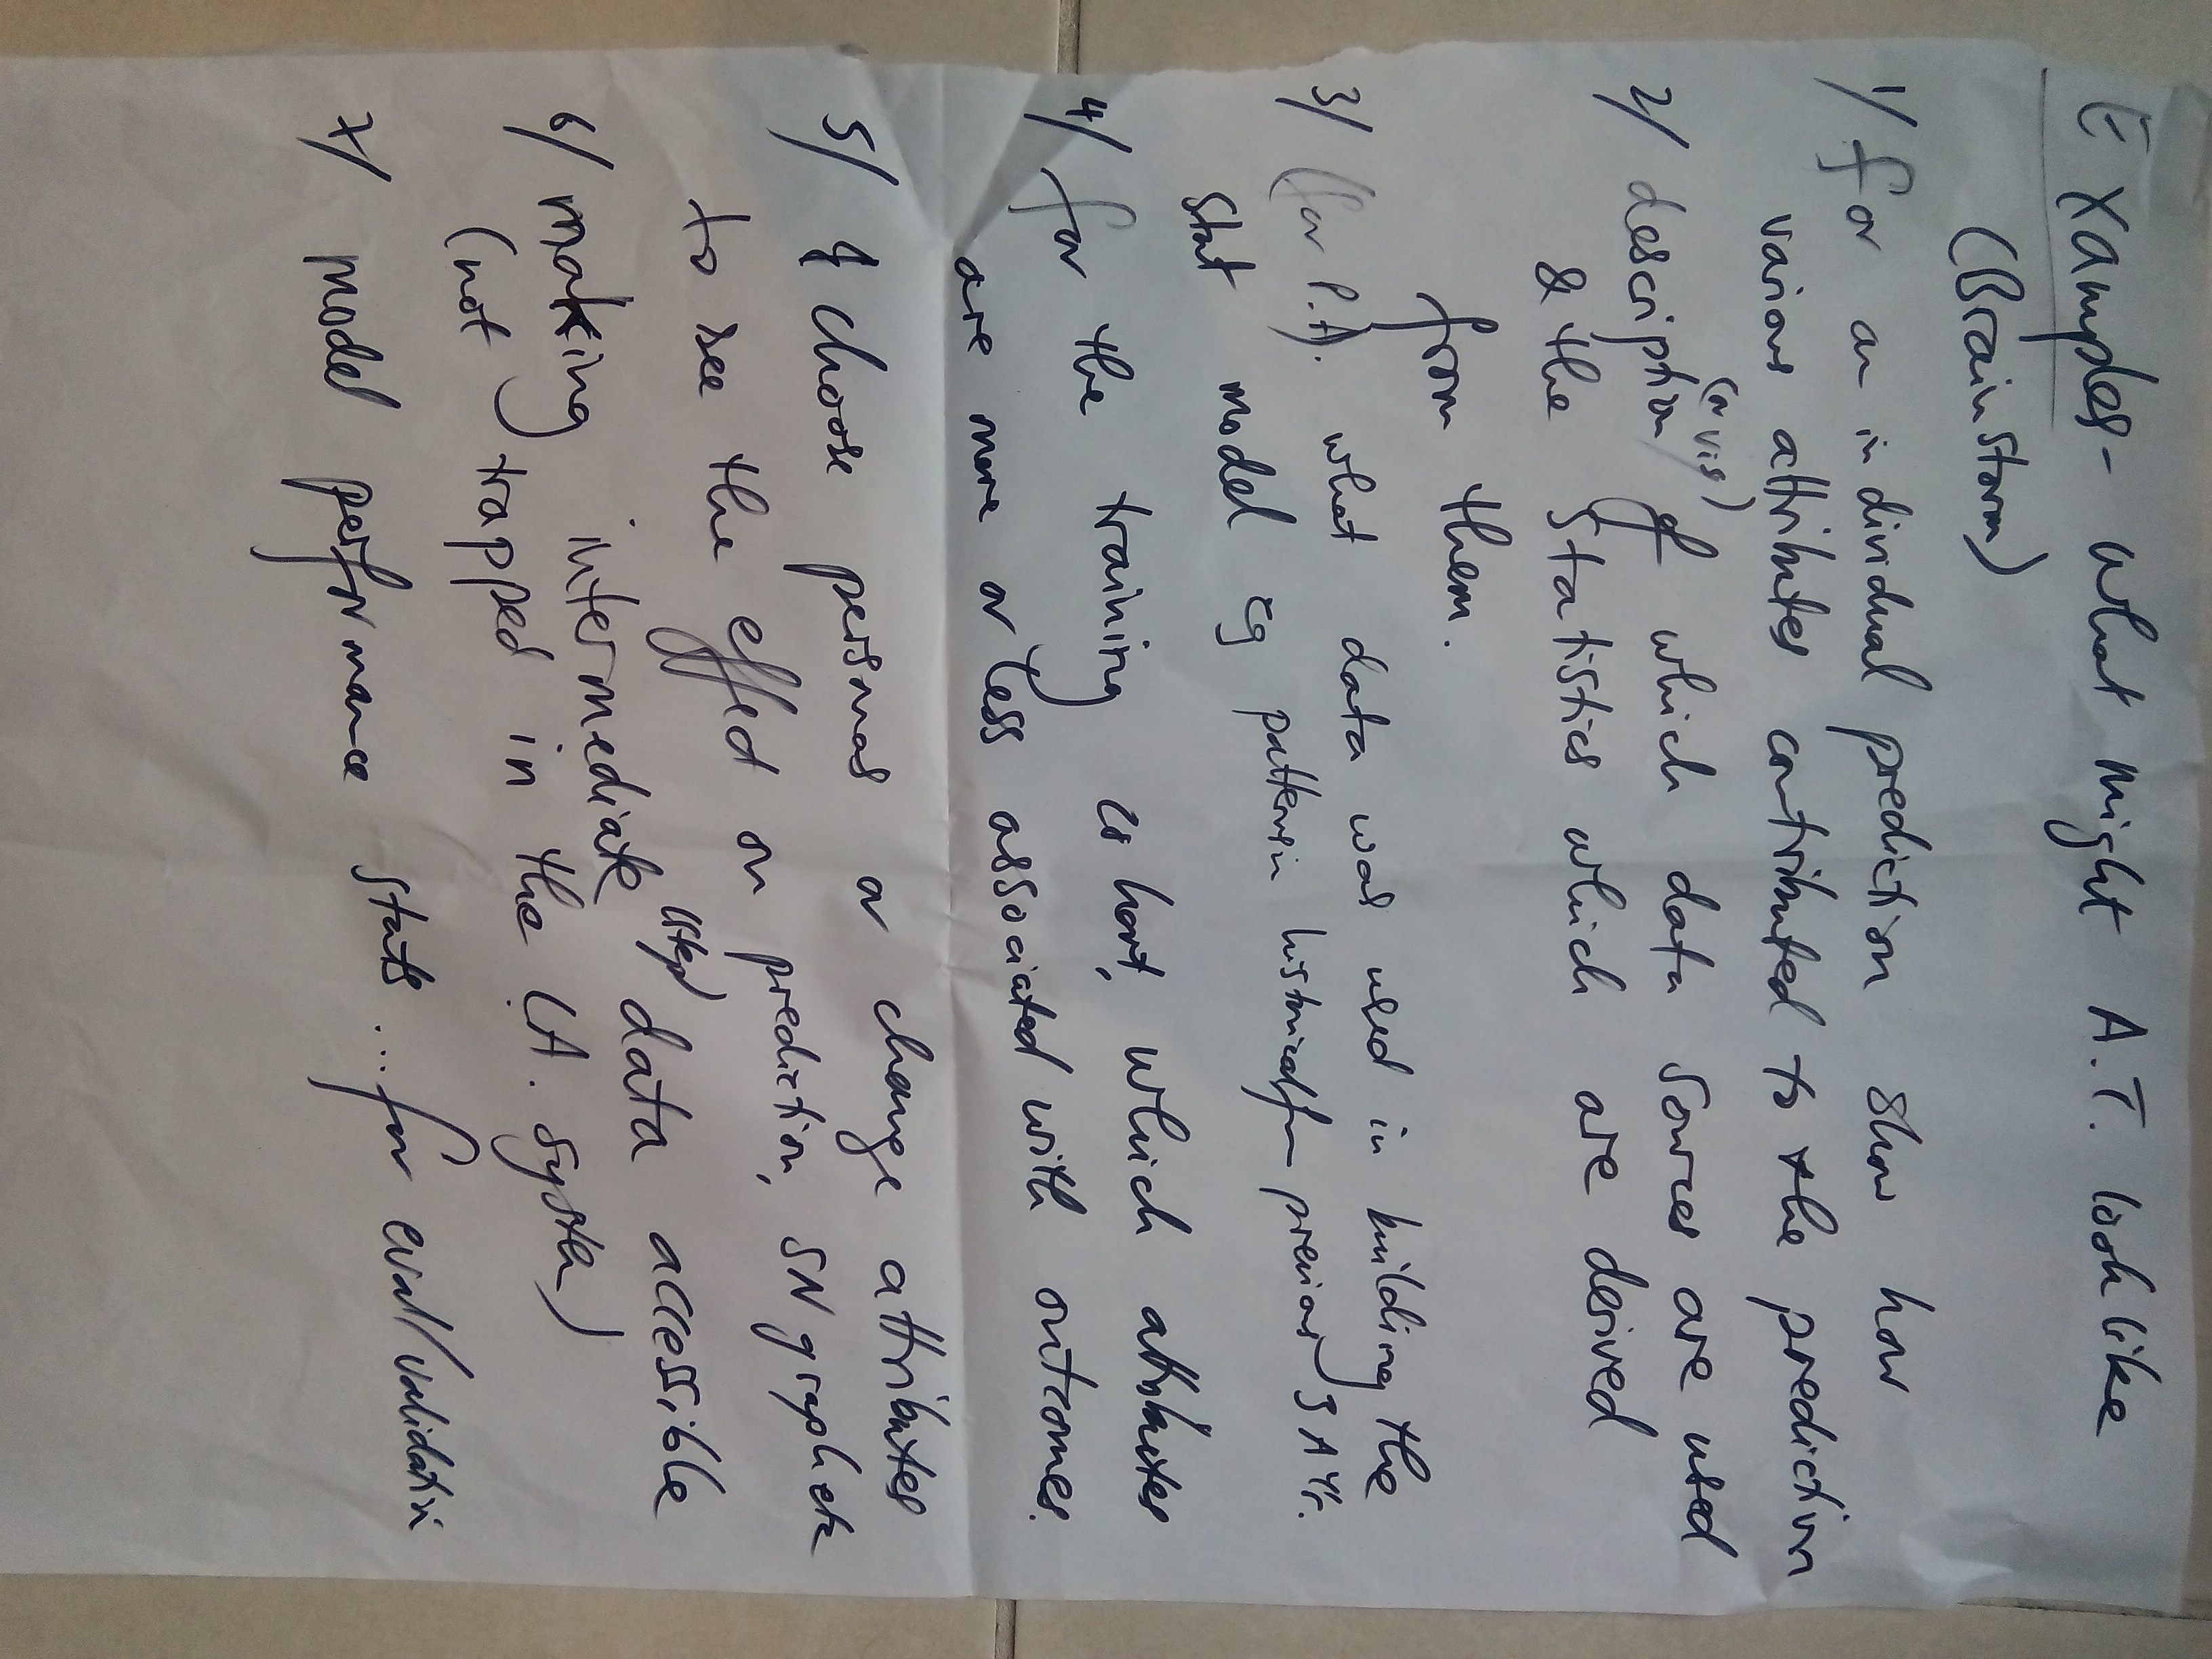 Examples - what might A.T. look like
(Brainstorm)
1/ for an individual prediction show how
various attributes contributed to the prediction
(or vis)
2/ description of which data sources are used
& the statistics which are derived
from them.
3/ (for P.A). what data was used in building the
stat model eg patterns in historical from previous 3 A Yr.
4/ for the training cohort, which attributes
are more or less associated with outcomes.
5/ choose personas or change attributes
to see the effect on prediction, SN graph etc
6/ making intermediate data accessible
(not trapped in the LA. system)
7/ model performance stats ... for eval/validation